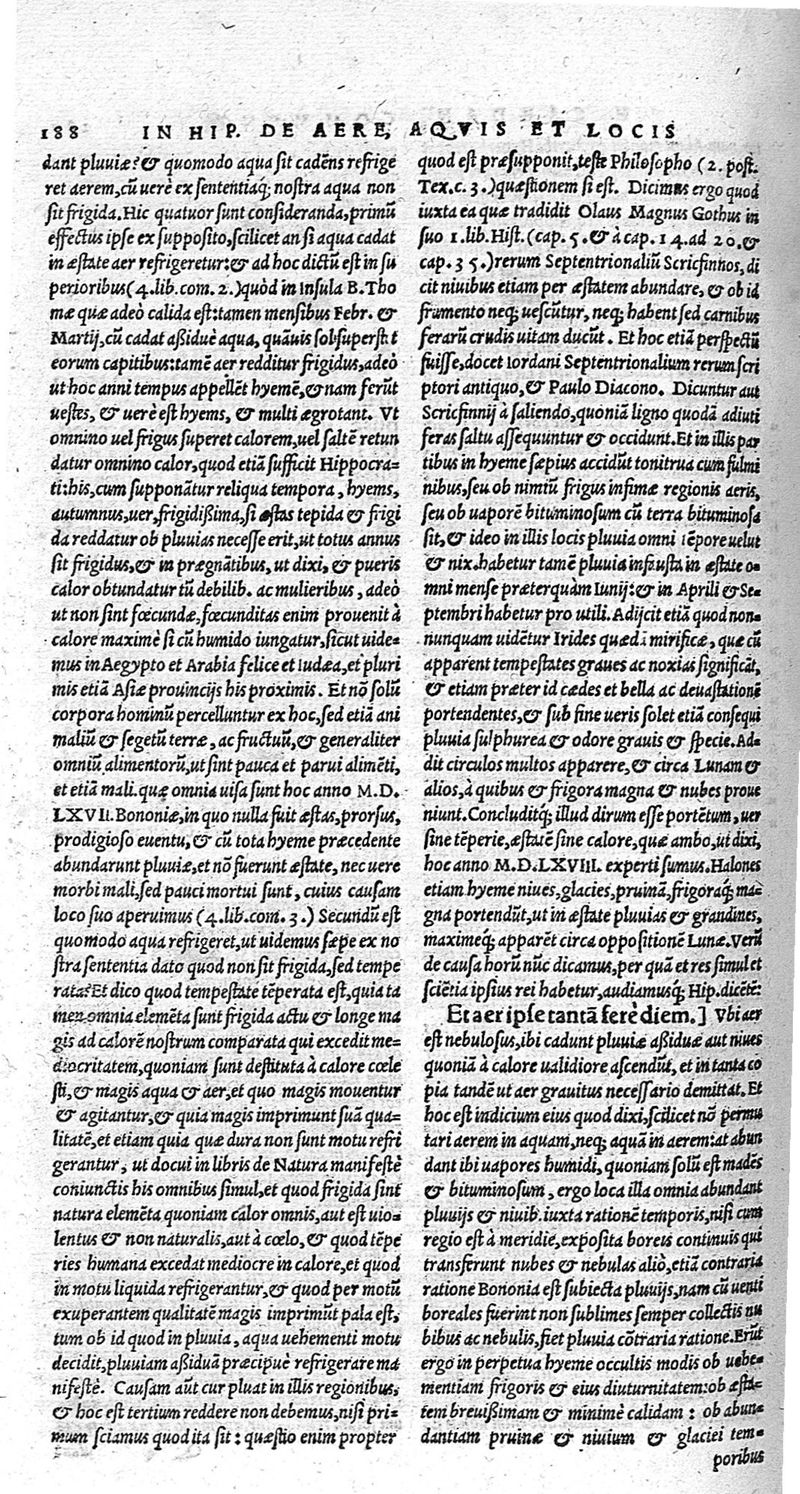 188 IN HIP. DE AERE, AQVIS ET LOCIS
dant pluuiæ? & quomodo aqua sit cadēns refrige
ret aerem, cū uerè ex sententiaq́; nostra aqua non
sit frigida. Hic quatuor sunt consideranda, primū
effectus ipse ex supposito, scilicet an si aqua cadat
in æstate aer refrigeretur: & ad hoc dictū est in su
perioribus (4. lib. com. 2.) quòd in Insula B. Tho
mæ quæ adeò calida est: tamen mensibus Febr. &
Martij, cū cadat aßiduè aqua, quāuis sol superstet
eorum capitibus: tamē aer redditur frigidus, adeò
ut hoc anni tempus appellēt hyemē, & nam ferūt
uestes, & uerè est hyems, & multi ægrotant. Vt
omnino uel frigus superet calorem, uel saltē retun
datur omnino calor, quod etiā sufficit Hippocra=
ti: his, cum supponātur reliqua tempora, hyems,
autumnus, uer, frigidißima, si æstas tepida & frigi
da reddatur ob pluuias necesse erit, ut totus annus
sit frigidus, & in prægnātibus, ut dixi, & pueris
calor obtundatur tū debilib. ac mulieribus, adeò
ut non sint fœcundæ, fœcunditas enim prouenit à
calore maximè si cū humido iungatur, sicut uide=
mus in Aegypto et Arabia felice et Iudæa, et pluri
mis etiā Asiæ prouincijs his proximis. Et nō solū
corpora hominū percelluntur ex hoc, sed etiā ani
maliū & segetū terræ, ac fructuū, & generaliter
omniū alimentorū, ut sint pauca et parui alimēti,
et etiā mali. quæ omnia uisa sunt hoc anno M.D.
LXVII. Bononiæ, in quo nulla fuit æstas, prorsus,
prodigioso euentu, & cū tota hyeme præcedente
abundarunt pluuiæ, et nō fuerunt æstate, nec uere
morbi mali, sed pauci mortui sunt, cuius causam
loco suo aperuimus (4. lib. com. 3.) Secundū est
quomodo aqua refrigeret, ut uidemus sæpe ex no
stra sententia dato quod non sit frigida, sed tempe
rata? Et dico quod tempestate tēperata est, quia ta
men omnia elemēta sunt frigida actu & longe ma
gis ad calorē nostrum comparata qui excedit me=
diocritatem, quoniam sunt destituta à calore cœle
sti, & magis aqua & aer, et quo magis mouentur
& agitantur, & quia magis imprimunt suā qua=
litatē, et etiam quia quæ dura non sunt motu refri
gerantur, ut docui in libris de Natura manifestè
coniunctis his omnibus simul, et quod frigida sint
natura elemēta quoniam calor omnis, aut est uio=
lentus & non naturalis, aut à cœlo, & quod tēpe
ries humana excedat mediocre in calore, et quod
in motu liquida refrigerantur, & quod per motū
exuperantem qualitatē magis imprimūt pala est,
tum ob id quod in pluuia, aqua uehementi motu
decidit, pluuiam aßiduā præcipuè refrigerare ma
nifestè. Causam aūt cur pluat in illis regionibus,
& hoc est tertium reddere non debemus, nisi pri=
mum sciamus quod ita sit: quæstio enim propter
quod est præsupponit, teste Philosopho (2. post.
Tex. c. 3.) quæstionem si est. Dicimus ergo quod
iuxta ea quæ tradidit Olaus Magnus Gothus in
suo 1. lib. Hist. (cap. 5. & à cap. 14. ad 20. &
cap. 35.) rerum Septentrionaliū Scricfinhos, di
cit niuibus etiam per æstatem abundare, & ob id
frumento neq; uescūtur, neq; habent sed carnibus
ferarū crudis uitam ducūt. Et hoc etiā perspectū
fuisse, docet Iordani Septentrionalium rerum scri
ptori antiquo, & Paulo Diacono. Dicuntur aut
Scricfinnij à saliendo, quoniā ligno quodā adiuti
feras saltu assequuntur & occidunt. Et in illis par
tibus in hyeme sæpius accidūt tonitrua cum fulmi
nibus, seu ob nimiū frigus infimæ regionis aeris,
seu ob uaporē bituminosum cū terra bituminosa
sit, & ideo in illis locis pluuia omni tēpore uelut
& nix. habetur tamē pluuia infausta in æstate o=
mni mense præterquàm Iunij: & in Aprili & Se=
ptembri habetur pro utili. Adijcit etiā quod non=
nunquam uidētur Irides quædā mirificæ, quæ cū
apparent tempestates graues ac noxias significāt,
& etiam præter id cædes et bella ac deuastationē
portendentes, & sub fine ueris solet etiā consequi
pluuia sulphurea & odore grauis & specie. Ad=
dit circulos multos apparere, & circa Lunam &
alios, à quibus & frigora magna & nubes proue
niunt. Concluditq́; illud dirum esse portētum, uer
sine tēperie, æstatē sine calore, quæ ambo, ut dixi,
hoc anno M.D.LXVIII. experti sumus. Halones
etiam hyeme niues, glacies, pruinā, frigoraq́; ma=
gna portendūt, ut in æstate pluuias & grandines,
maximeq́; apparēt circa oppositionē Lunæ. Verū
de causa horū nūc dicamus, per quā et res simul et
sciētia ipsius rei habetur, audiamusq́; Hip. dicētē:
Et aer ipse tantā ferè diem.] Vbi aer
est nebulosus, ibi cadunt pluuiæ aßiduæ aut niues
quoniā à calore ualidiore ascendūt, et in tanta co
pia tandē ut aer grauitus necessario demittat. Et
hoc est indicium eius quod dixi, scilicet nō permu
tari aerem in aquam, neq; aquā in aerem: at abun
dant ibi uapores humidi, quoniam solū est madēs
& bituminosum, ergo loca illa omnia abundant
pluuijs & niuib. iuxta rationē temporis, nisi cum
regio est à meridie, exposita boreis continuis qui
transferunt nubes & nebulas aliò, etiā contraria
ratione Bononia est subiecta pluuijs, nam cū uenti
boreales fuerint non sublimes semper collectis nu
bibus ac nebulis, fiet pluuia cōtraria ratione. Erūt
ergo in perpetua hyeme occultis modis ob uehe=
mentiam frigoris & eius diuturnitatem: ob æsta=
tem breuißimam & minimè calidam: ob abun=
dantiam pruinæ & niuium & glaciei tem=
poribus